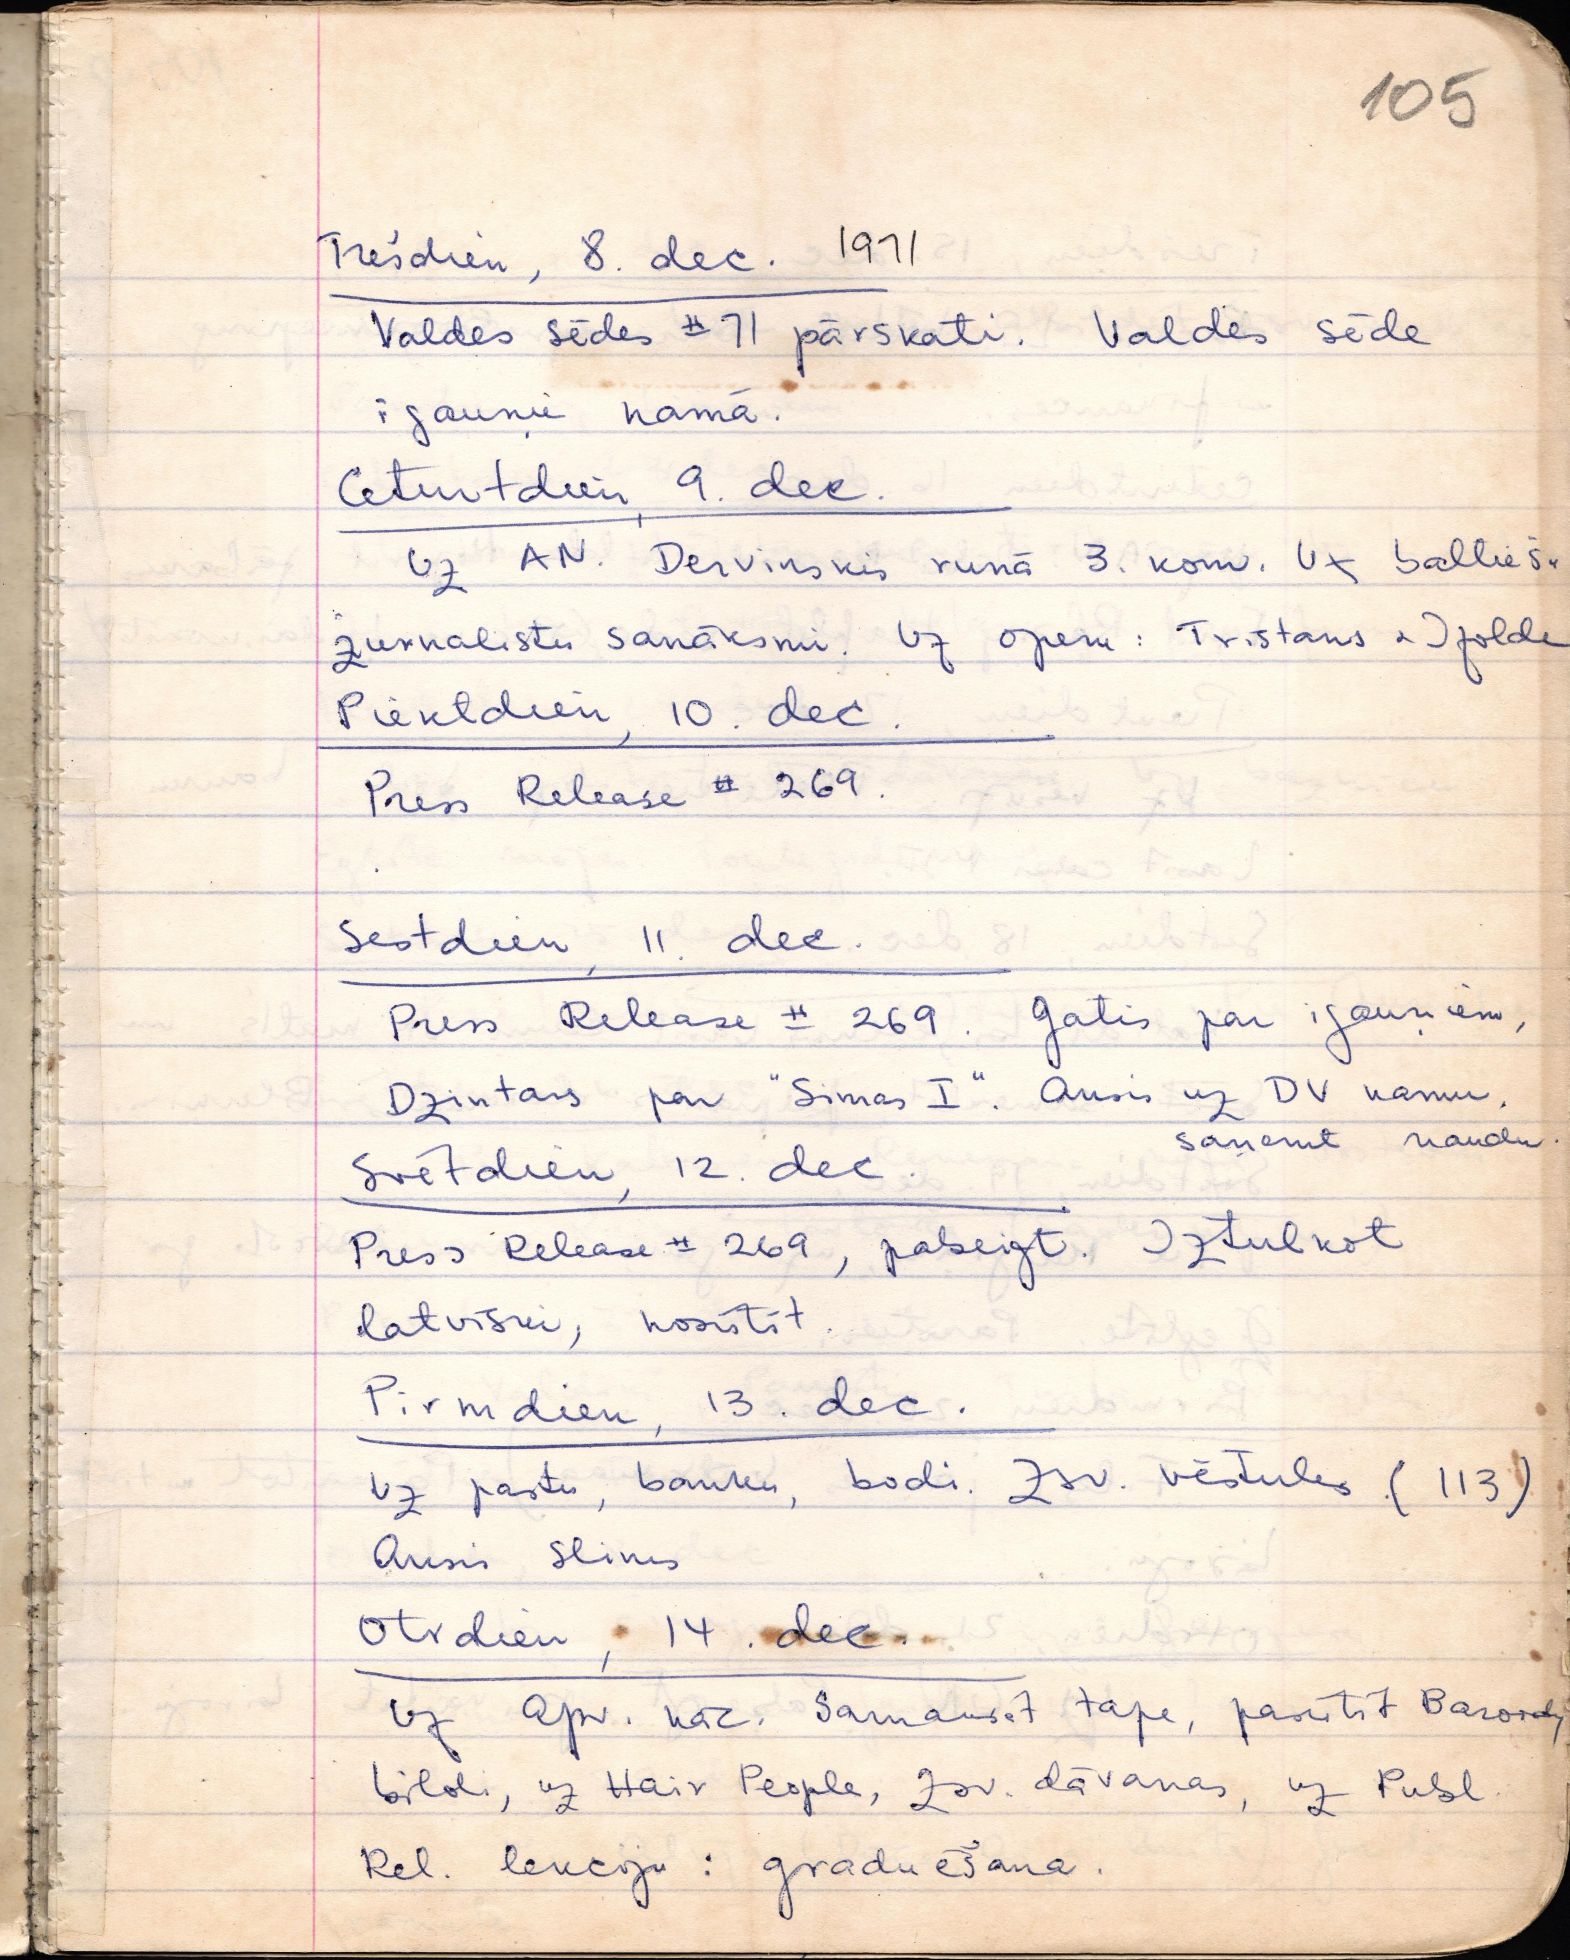 105
Trešdien, 8. dec. 1971
Valdes sēdes #71 pārskati. Valdes sēde
igauņu namā.
Ceturtdien, 9. dec.
Uz AN. Dervinskis runā 3. kom. Uz baltieš.
žurnalistu sanāksmi. Uz operu: Tristans & Izolde
Piektdien, 10. dec.
Press Release # 269.
Sestdien, 11. dec.
Press Release # 269. Gatis par igauņiem,
Dzintars par "Simas I". Ansis uz DV namu.
saņemt naudu.
Svētdien, 12. dec.
Press Release # 269, pabeigt. Iztulkot
latviski, nosūtīt.
Pirmdien, 13. dec.
Uz pastu, banku, bodi. Zsv. vēstules (113)
Ansis slims
Otrdien, 14. dec.
Uz Apv. nāc. Samaksāt tape, pasūtīt
bildi, uz Hair People, Zsv. dāvanas, uz Publ.
Rel. lekciju: graduēšana.